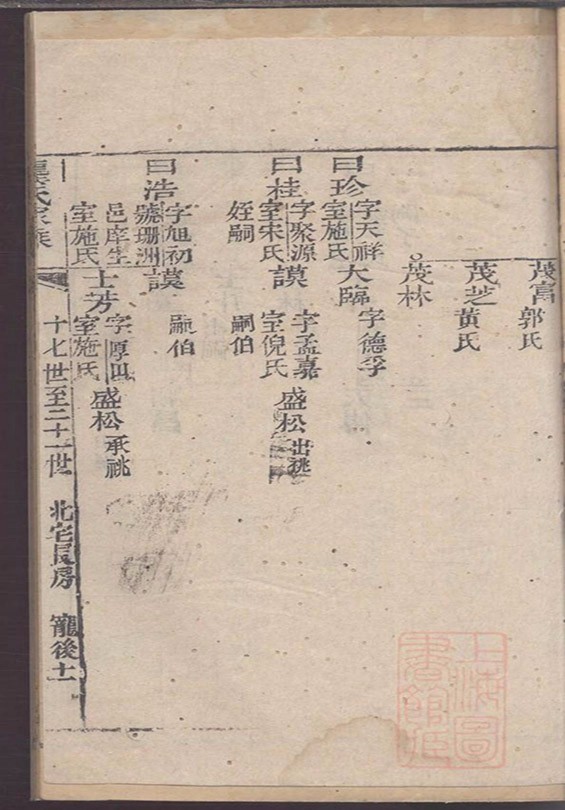 茂富
郭氏
茂芝
黃氏
茂林
曰珍
字天祥
室施氏
大臨
字德孚
曰桂
字聚源
室宋氏
謨
字孟嘉
室倪氏
盛松
出祧
姪嗣
嗣伯
曰浩
字旭初
號珊洲
邑庠生
室施氏
謨
嗣伯
士芳
字厚田
室施氏
盛松
承祧
氏家
十七世至二十一世
北宅長房
寵後十一
上海圖書館藏